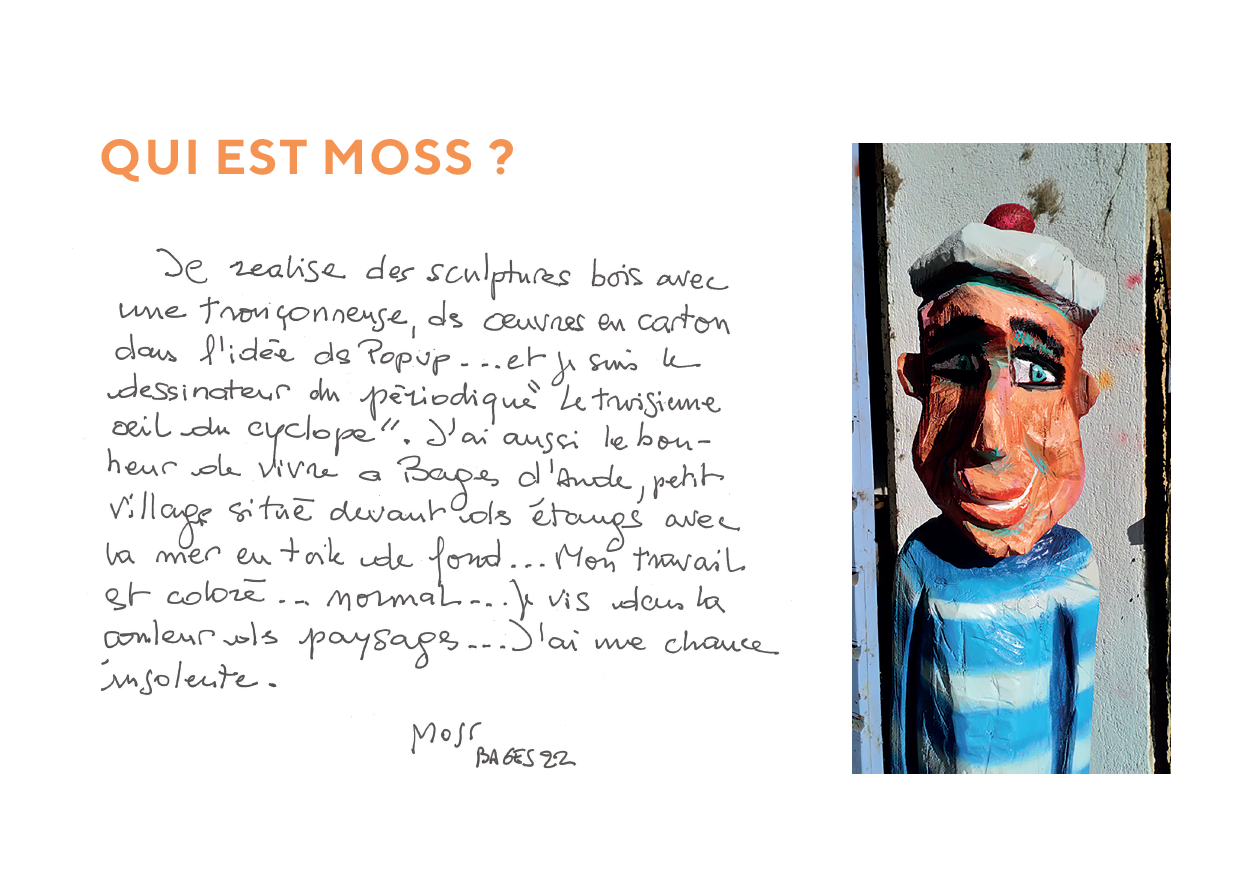 QUI EST MOSS ?
Je realise des sculptures bois avec
une tronçonneuse, des œuvres en carton
dans l'idée de Popup ... et je suis le
dessinateur du périodique "Le troisieme
œil du cyclope". J'ai aussi le bon-
heur de vivre a Bages d'Aude, petit
village situé devant des étangs avec
la mer en toile de fond... Mon travail
est coloré ... normal ... Je vis dans la
couleur des paysages ... J'ai une chance
insolente.
Moss
BAGES 22